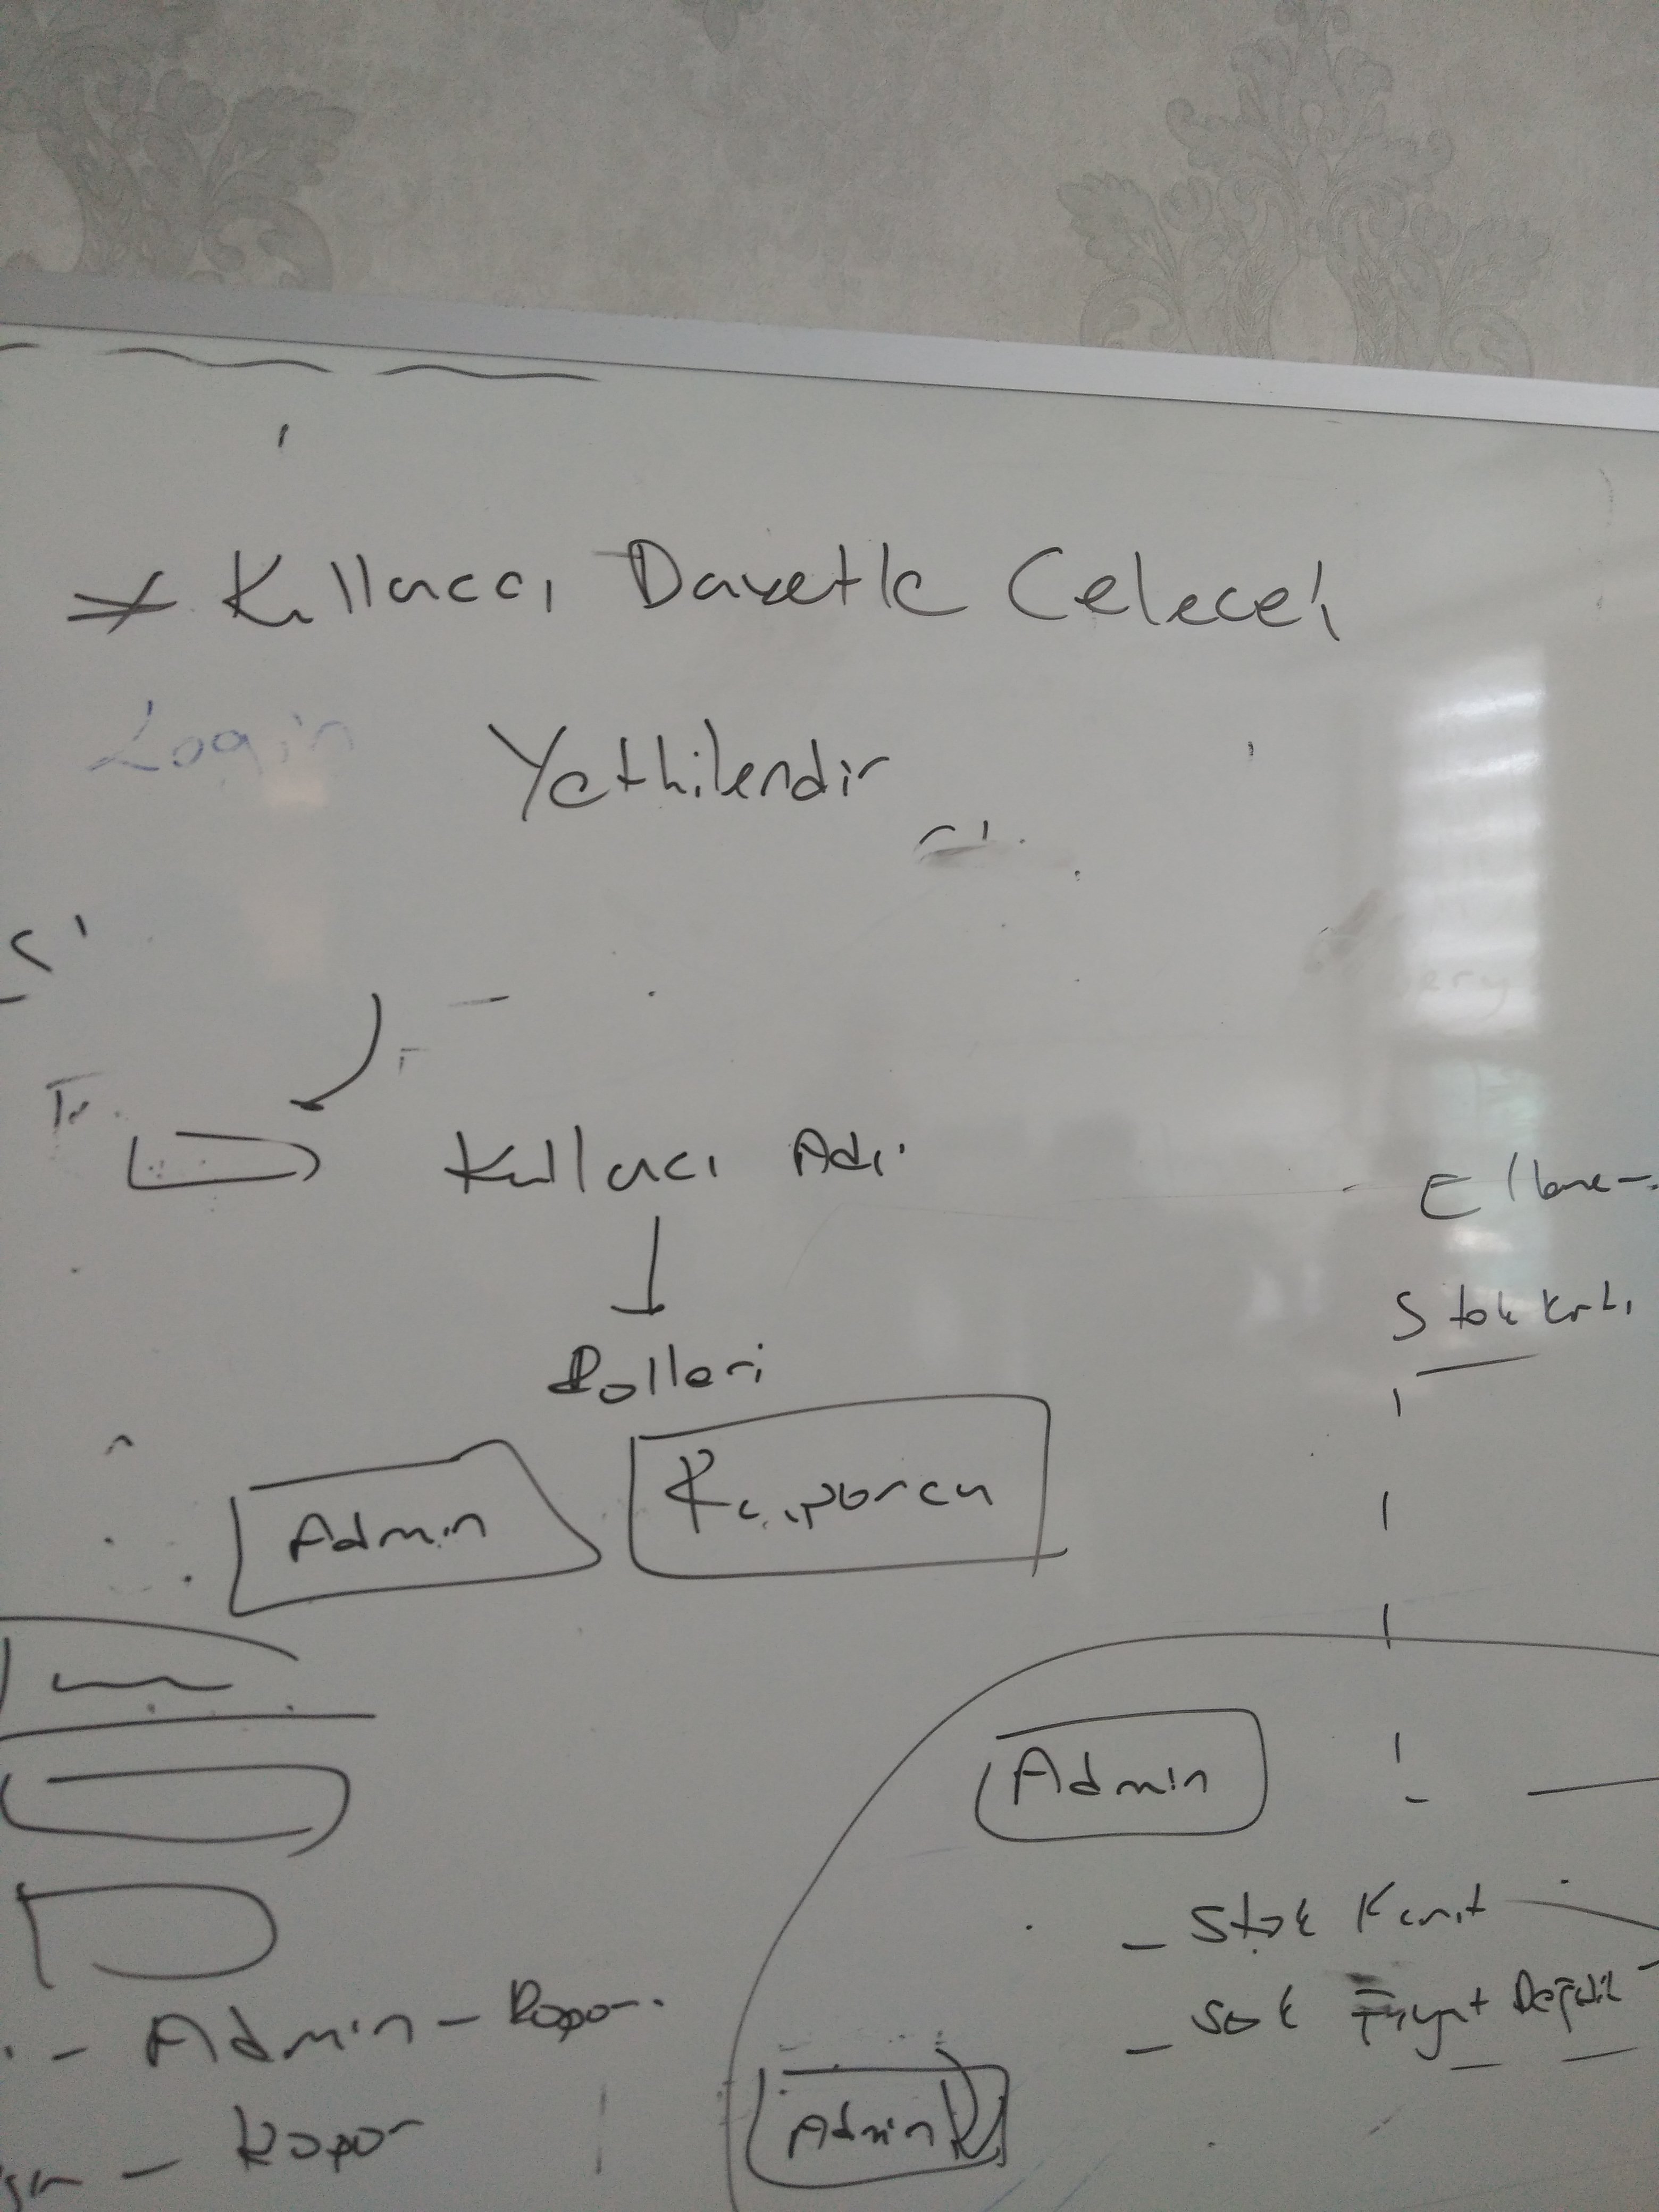 Kullacı Davetle Gelecek
Login
Yetkilendir
Kullacı Adı
Rolleri
Admin
Raporcu
Stok Kartı
Admin
- Stok Kart
- Stok Fiyat Değişik
- Admin - Rapor
Admin
- Rapor